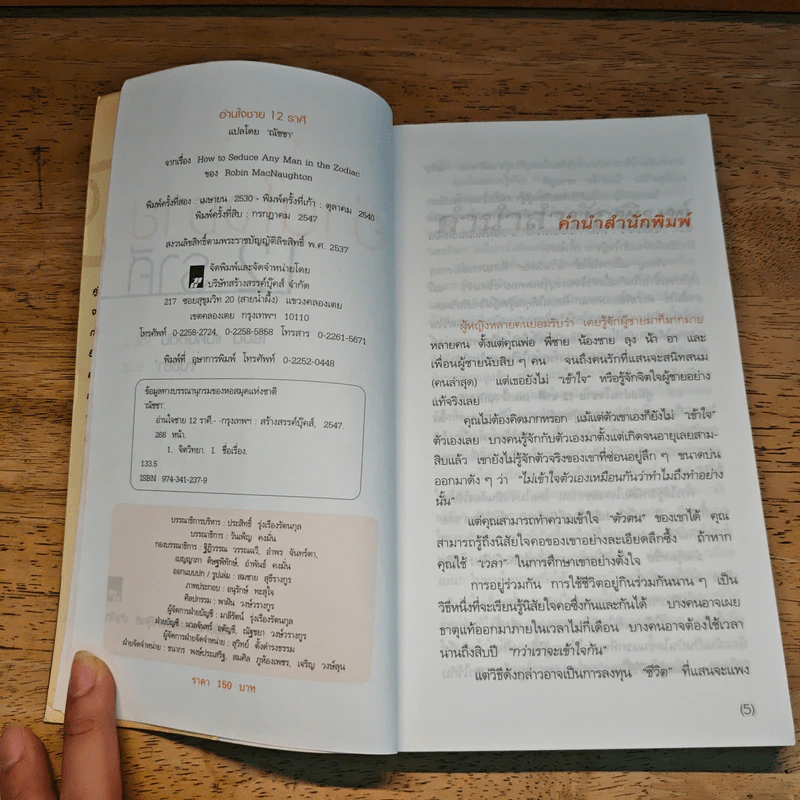 อ่านใจชาย 12 ราศี
แปลโดย 'ณัชชา'
จากเรื่อง How to Seduce Any Man in the Zodiac
ของ Robin MacNaughton
พิมพ์ครั้งที่สอง : เมษายน 2530 - พิมพ์ครั้งที่เก้า : ตุลาคม 2540
พิมพ์ครั้งที่สิบ : กรกฎาคม 2547
สงวนลิขสิทธิ์ตามพระราชบัญญัติลิขสิทธิ์ พ.ศ. 2537
จัดพิมพ์และจัดจำหน่ายโดย
บริษัทสร้างสรรค์บุ๊คส์ จำกัด
217 ซอยสุขุมวิท 20 (สายน้ำผึ้ง) แขวงคลองเตย
เขตคลองเตย กรุงเทพฯ 10110
โทรศัพท์ 0-2258-2724, 0-2258-5858 โทรสาร 0-2261-5671
พิมพ์ที่ อุษาการพิมพ์ โทรศัพท์ 0-2252-0448
ข้อมูลทางบรรณานุกรมของหอสมุดแห่งชาติ
'ณัชชา'.
อ่านใจชาย 12 ราศี.--กรุงเทพฯ : สร้างสรรค์บุ๊คส์, 2547.
268 หน้า.
1. จิตวิทยา. I. ชื่อเรื่อง.
133.5
ISBN 974-341-237-9
บรรณาธิการบริหาร : ประสิทธิ์ รุ่งเรืองรัตนกุล
บรรณาธิการ : วันเพ็ญ คงมั่น
กองบรรณาธิการ : ฐิฏิวรรณ วรรณฉวี, อำพร จันทร์ดา,
เบญญาภา ดิษฐพิทักษ์, อำพันธ์ คงมั่น
ออกแบบปก / รูปเล่ม : สมชาย สุธีรางกูร
ภาพประกอบ : อนุรักษ์ ทะสุใจ
ศิลปกรรม : พาฝัน วงษ์วรางกูร
ผู้จัดการฝ่ายบัญชี : มาลีรัตน์ รุ่งเรืองรัตนกุล
ฝ่ายบัญชี : ณัฐชยา วงษ์วรางกูร
ผู้จัดการฝ่ายจัดจำหน่าย : สุวิทย์ ตั้งดำรงธรรม
ฝ่ายจัดจำหน่าย : ธนากร พงษ์ประเสริฐ, สมศิล ภูทองเพชร, เจริญ วงษ์สุน
ราคา 150 บาท
คำนำสำนักพิมพ์
ผู้หญิงหลายคนยอมรับว่า เคยรู้จักผู้ชายมาก็มากมาย
หลายคน ตั้งแต่คุณพ่อ พี่ชาย น้องชาย ลุง น้า อา และ
เพื่อนผู้ชายนับสิบ ๆ คน จนถึงคนรักที่แสนจะสนิทสนม
(คนล่าสุด) แต่เธอยังไม่ "เข้าใจ" หรือรู้จักจิตใจผู้ชายอย่าง
แท้จริงเลย
คุณไม่ต้องคิดมากหรอก แม้แต่ตัวเขาเองก็ยังไม่ "เข้าใจ"
ตัวเองเลย บางคนรู้จักกับตัวเองมาตั้งแต่เกิดจนอายุเลยสาม-
สิบแล้ว เขายังไม่รู้จักตัวจริงของเขาที่ซ่อนอยู่ลึก ๆ ขนาดบ่น
ออกมาดัง ๆ ว่า "ไม่เข้าใจตัวเองเหมือนกันว่าทำไมถึงทำอย่าง
นั้น"
แต่คุณสามารถทำความเข้าใจ "ตัวตน" ของเขาได้ คุณ
สามารถรู้ถึงนิสัยใจคอของเขาอย่างละเอียดลึกซึ้ง ถ้าหาก
คุณใช้ "เวลา" ในการศึกษาเขาอย่างตั้งใจ
การอยู่ร่วมกัน การใช้ชีวิตอยู่กินร่วมกันนาน ๆ เป็น
วิธีหนึ่งที่จะเรียนรู้นิสัยใจคอซึ่งกันและกันได้ บางคนอาจเผย
ธาตุแท้ออกมาภายในเวลาไม่กี่เดือน บางคนอาจต้องใช้เวลา
นานถึงสิบปี "กว่าเราจะเข้าใจกัน"
แต่วิธีดังกล่าวอาจเป็นการลงทุน "ชีวิต" ที่แสนจะแพง
(5)